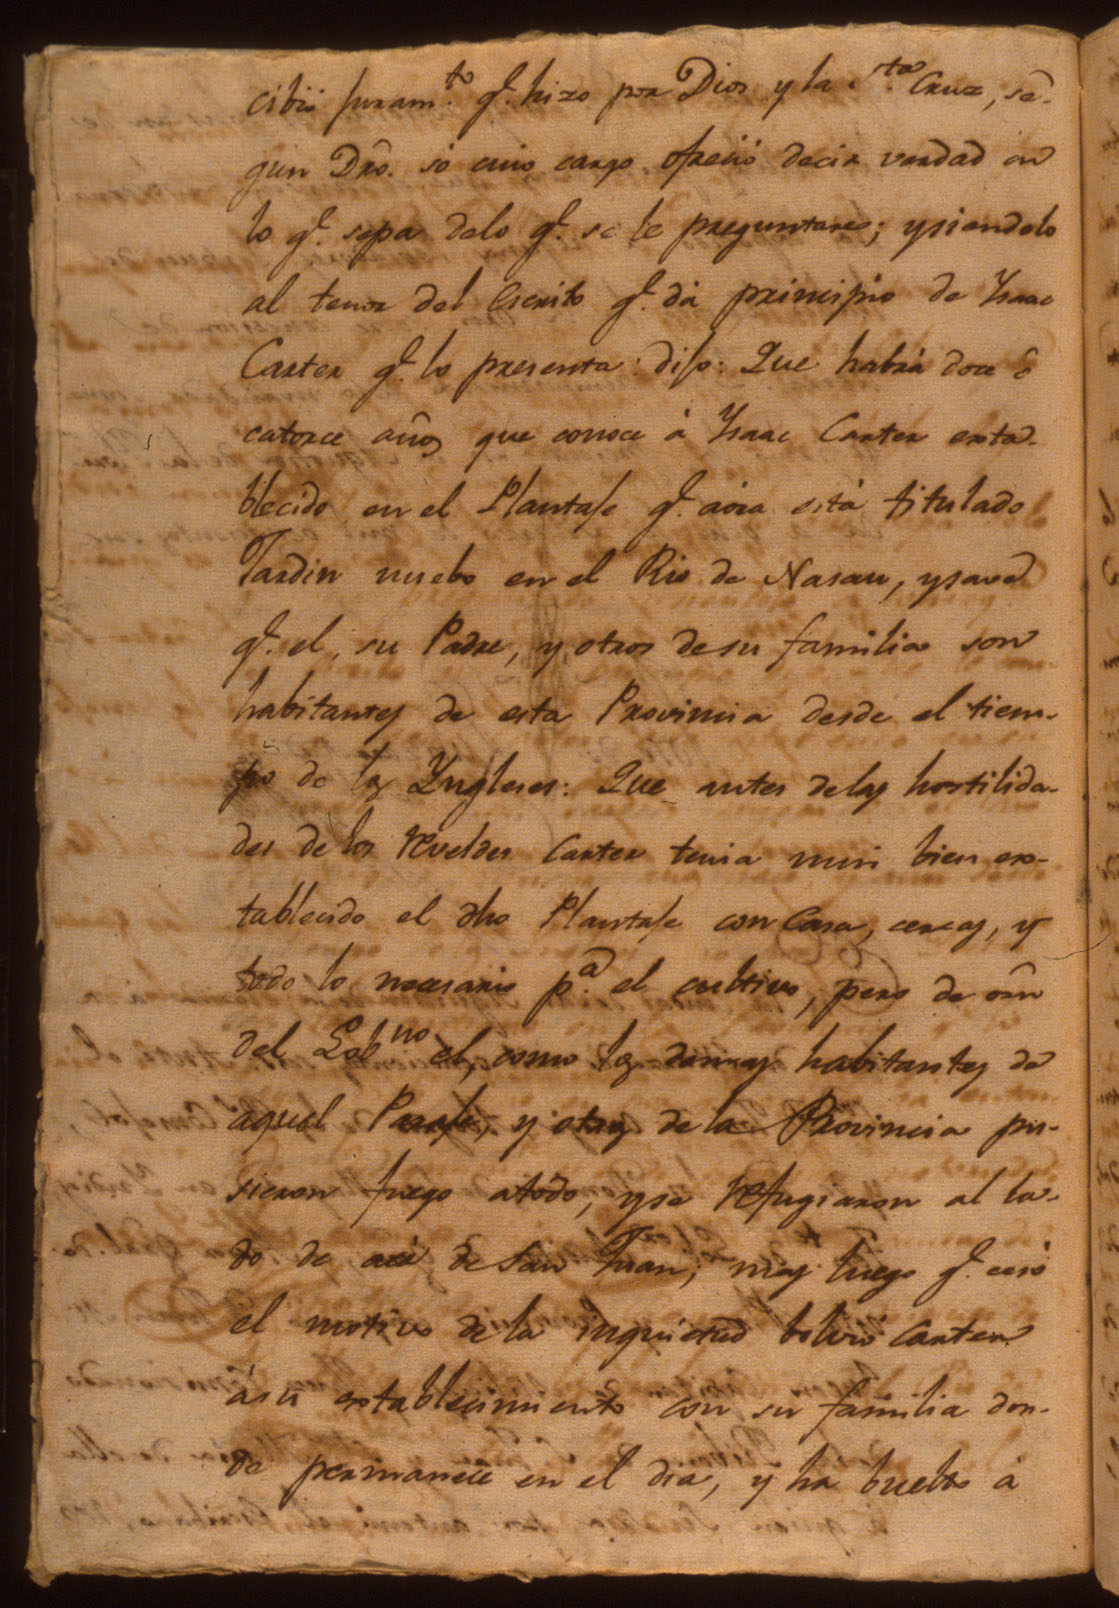 cibió juram.to q.e hizo por Dios y la S.ta Cruz, se-
gun Dro. so cuio cargo ofreció decir verdad en
lo q.e sepa delo q.e se le preguntare; ysiendolo
al tenor del Escrito q.e dá principio de Ysaac
Carter q.e lo presenta: dijo: Que habrá doce ó
catorce años que conoce á Ysaac Carter esta-
blecido en el Plantaje q.e aóra está titulado
Jardin nuebo en el Rio de Nasau, ysave
q.e el, su Padre, y otros de su familia son
habitantes de esta Provincia desde el tiem-
po de los Yngleses: Que antes delas hostilida-
des de los reveldes Carter tenia mui bien es-
tablecido el dho Plantaje con Casa, cercas, y
todo lo necesario p.a el cultivo, pero de orn
del Gob.no el, como los demas habitantes de
aquel Paraje, y otros de la Provincia pu-
sieron fuego atodo, yse refugiaron al la-
do de acá de San Juan; mas luego q.e cesó
el motivo de la inquietud bolvió Carter
ásu establecimiento con su familia don-
de permanece en el dia, y ha buelto á